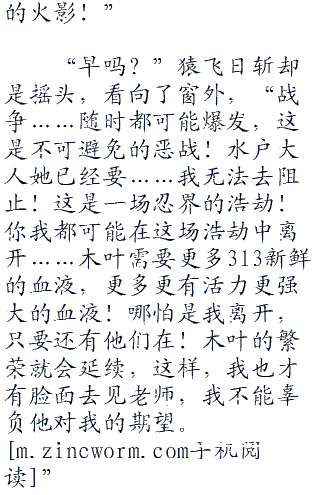 的火影！”
“早吗？”猿飞日斩却
是摇头，看向了窗外，“战
争……随时都可能爆发，这
是不可避免的恶战！水户大
人她已经要……我无法去阻
止！这是一场忍界的浩劫！
你我都可能在这场浩劫中离
开……木叶需要更多313新鲜
的血液，更多更有活力更强
大的血液！哪怕是我离开，
只要还有他们在！木叶的繁
荣就会延续，这样，我也才
有脸面去见老师，我不能辜
负他对我的期望。
[m.zincworm.com手机阅
读]”